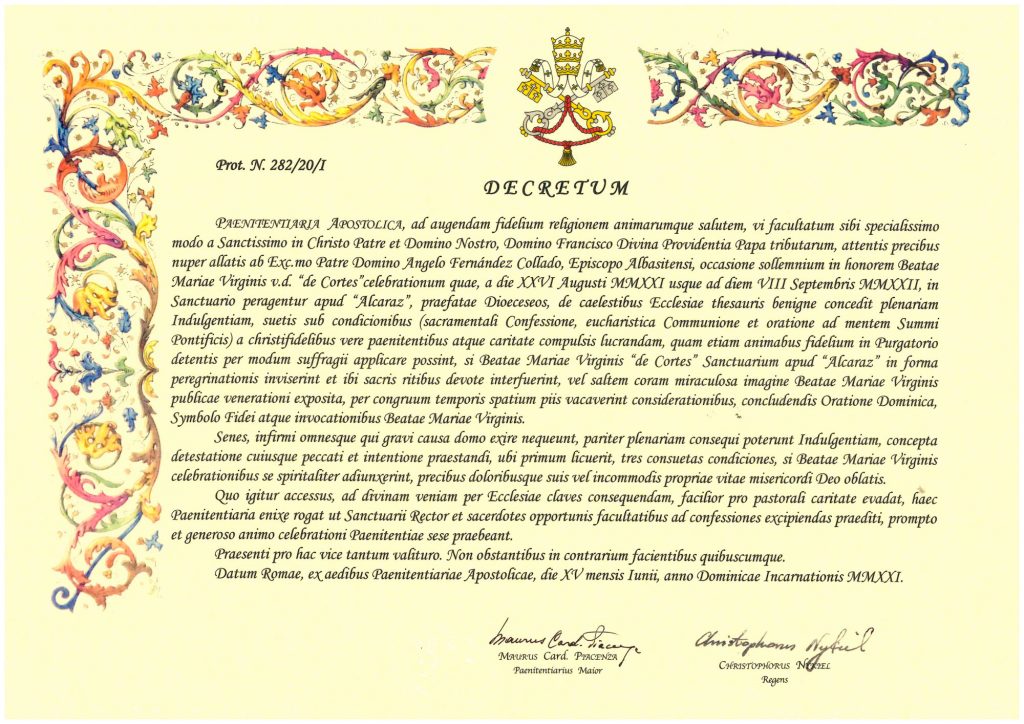 Prot. N. 282/20/I
DECRETUM
PAENITENTIARIA APOSTOLICA, ad augendam fidelium religionem animarumque salutem, vi facultatum sibi specialissimo
modo a Sanctissimo in Christo Patre et Domino Nostro, Domino Francisco Divina Providentia Papa tributarum, attentis precibus
nuper allatis ab Exc.mo Patre Domino Angelo Fernández Collado, Episcopo Albasitensi, occasione sollemnium in honorem Beatae
Mariae Virginis v.d. “de Cortes”celebrationum quae, a die XXVI Augusti MMXXI usque ad diem VIII Septembris MMXXII, in
Sanctuario peragentur apud “Alcaraz”, praefatae Dioeceseos, de caelestibus Ecclesiae thesauris benigne concedit plenariam
Indulgentiam, suetis sub condicionibus (sacramentali Confessione, eucharistica Communione et oratione ad mentem Summi
Pontificis) a christifidelibus vere paenitentibus atque caritate compulsis lucrandam, quam etiam animabus fidelium in Purgatorio
detentis per modum suffragii applicare possint, si Beatae Mariae Virginis “de Cortes” Sanctuarium apud “Alcaraz” in forma
peregrinationis inviserint et ibi sacris ritibus devote interfuerint, vel saltem coram miraculosa imagine Beatae Mariae Virginis
publicae venerationi exposita, per congruum temporis spatium piis vacaverint considerationibus, concludendis Oratione Dominica,
Symbolo Fidei atque invocationibus Beatae Mariae Virginis.
Senes, infirmi omnesque qui gravi causa domo exire nequeunt, pariter plenariam consequi poterunt Indulgentiam, concepta
detestatione cuiusque peccati et intentione praestandi, ubi primum licuerit, tres consuetas condiciones, si Beatae Mariae Virginis
celebrationibus se spiritaliter adiunxerint, precibus doloribusque suis vel incommodis propriae vitae misericordi Deo oblatis.
Quo igitur accessus, ad divinam veniam per Ecclesiae claves consequendam, facilior pro pastorali caritate evadat, haec
Paenitentiaria enixe rogat ut Sanctuarii Rector et sacerdotes opportunis facultatibus ad confessiones excipiendas praediti, prompto
et generoso animo celebrationi Paenitentiae sese praebeant.
Praesenti pro hac vice tantum valituro. Non obstantibus in contrarium facientibus quibuscumque.
Datum Romae, ex aedibus Paenitentiariae Apostolicae, die XV mensis Iunii, anno Dominicae Incarnationis MMXXI.
Maurus Card. Piacenza Christophorus Nykiel
MAURUS Card. PIACENZA CHRISTOPHORUS NYKIEL
Paenitentiarius Maior Regens